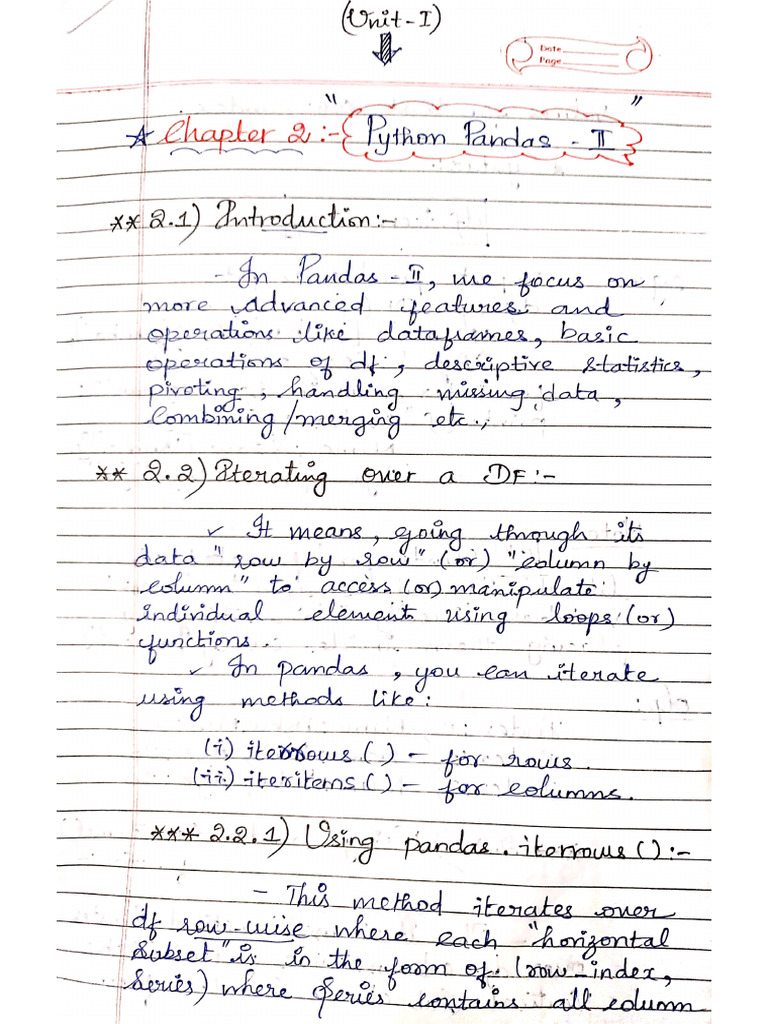 (Unit-I)
Date
Page
" "
☆ Chapter 2 :- Python Pandas - II
** 2.1) Introduction:-
- In Pandas - II, we focus on
more advanced features and
operations like dataframes, basic
operations of df, descriptive statistics,
pivoting, handling missing data,
combining/merging etc.,
** 2.2) Iterating over a DF:-
✓ It means, going through its
data "row by row" (or) "column by
column" to access (or) manipulate
individual element using loops (or)
functions.
✓ In pandas, you can iterate
using methods like:
(i) iterrows() - for rows.
(ii) iteritems() - for columns.
*** 2.2.1) Using pandas.iterrows():-
- This method iterates over
df row-wise where each "horizontal
Subset" is in the form of (row-index,
Series) where Series contains all column